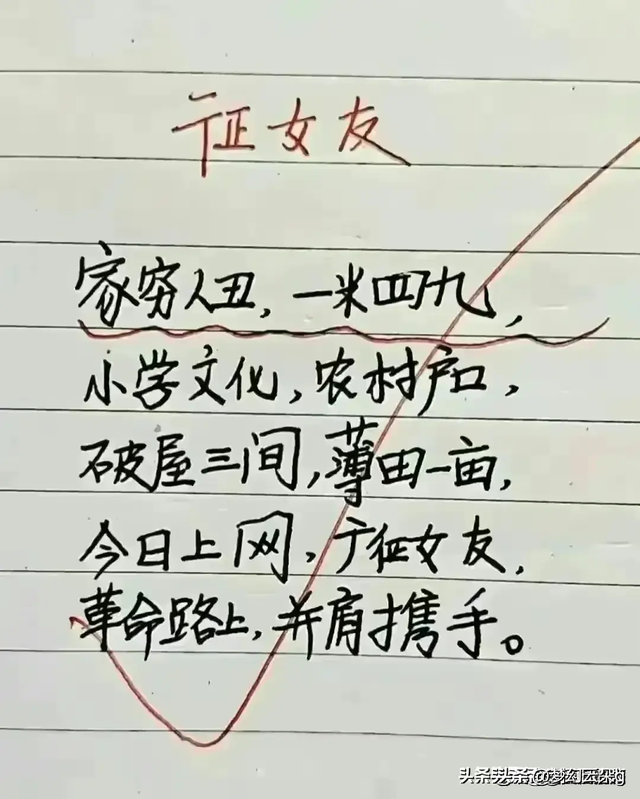 广征女友
家穷人丑，一米四九，
小学文化，农村户口，
破屋三间，薄田一亩，
今日上网，广征女友，
革命路上，并肩携手。